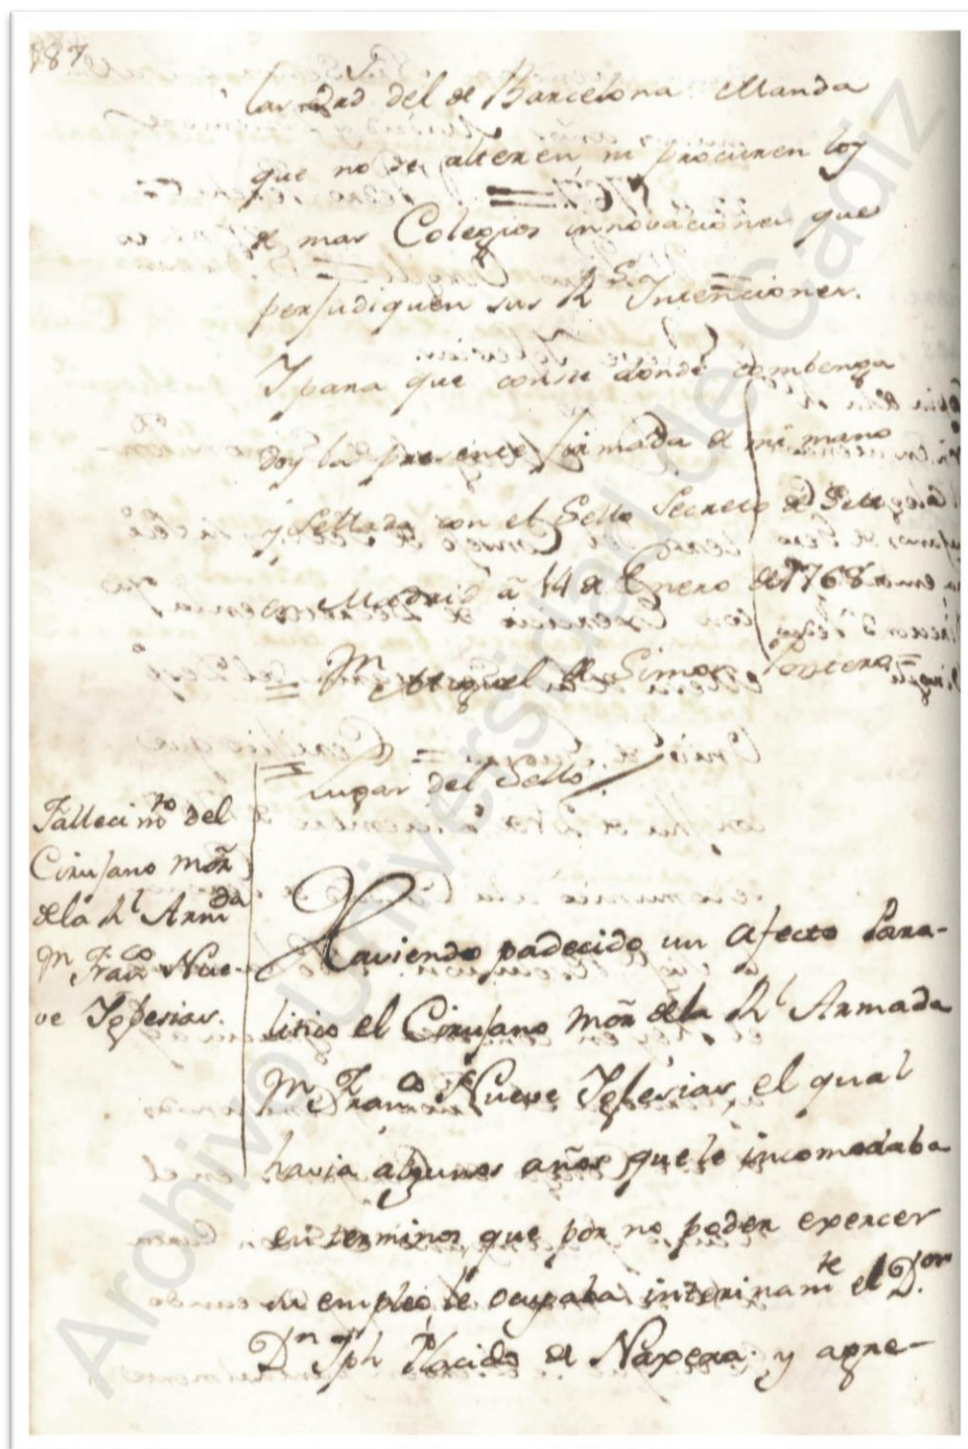 187
las del de Barcelona Manda
que no se alteren ni procuren los
de mas Colegios innovaciones que
perjudiquen sus Rs Intenciones.
Y para que conste donde combenga
doy la presente firmada de mi mano
y Sellada con el Sello Secreto de
en Madrid â 14 de Enero de 1768
Mn Miguel de Simon Pontero=
Lugar del Sello
Fallecimto del
Cirujano Mor
de la Rl Armda
Mn Franco Nue-
ve Yglesias.
Haviendo padecido un afecto Para-
litico el Cirujano Mor de la Rl Armada
Mn Franco Nueve Yglesias el qual
havia algunos años que le incomodaba
en terminos que por no poder exercer
su empleo le ocupaba interinamte el Dor
Dn Jph Placido de Naxera y agre-
Archivo Universidad de Cádiz